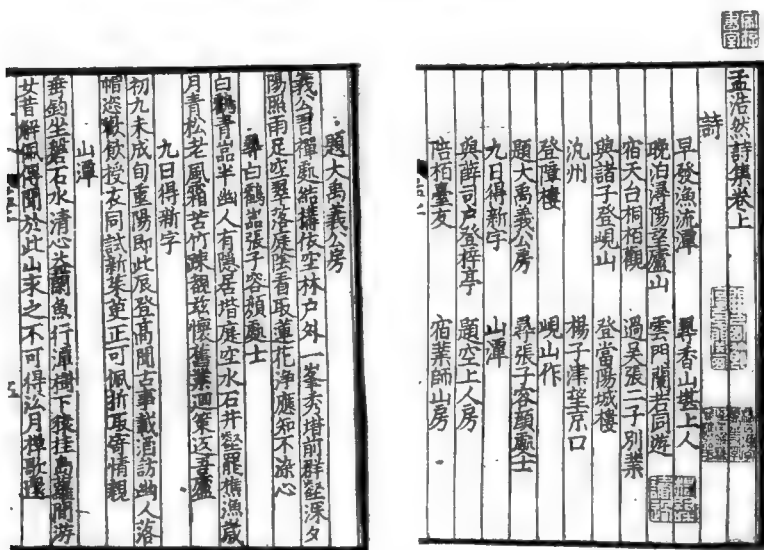 孟浩然詩集卷上
詩
早發漁浦潭 尋香山堪上人
晚泊潯陽望廬山 雲門蘭若同遊
宿天台桐栢觀 過吳張二子別業
與諸子登峴山 登當陽城樓
州 楊子津望京口
登樓 峴山作
題大禹義公房 尋張子容顏處士
九日得新字 山潭
與薛司戶登梓亭 題空上人房
陪栢臺友 宿業師山房
題大禹義公房
義公習禪處結構依空林戶外一峯秀堦前群壑深夕
陽照雨足空翠落庭陰看取蓮花淨應知不染心
尋白鶴嵓張子容顏處士
白鶴青嵓半幽人有隱居堦庭空水石林壑罷樵漁歲
月青松老風霜苦竹踈覩茲懷舊業迴策返吾廬
九日得新字
初九未成旬重陽即此辰登高聞古事載酒訪幽人落
帽恣歡飲授衣同試新茱萸正可佩折取寄情親
山潭
垂釣坐磐石水清心益閑魚行潭樹下猿挂島蘿間游
女昔解佩傳聞於此山求之不可得沿月棹歌還